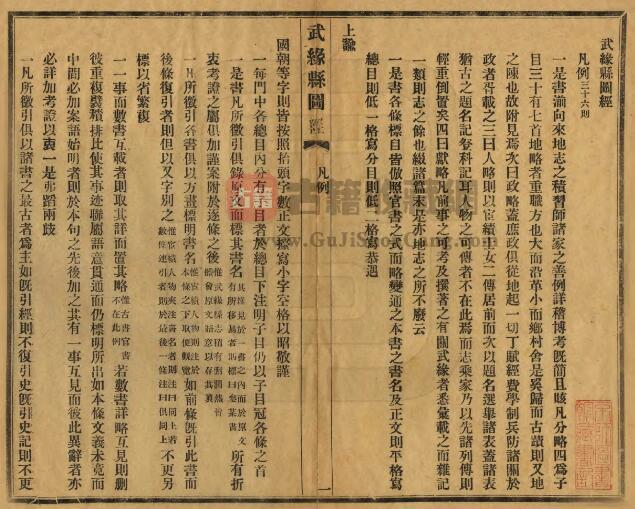 武緣縣圖經
凡例三十六則
一是書湔向來地志之積習師諸家之善例詳稽博考旣簡且賅凡分略四爲子
目三十有七首地略者重職方也大而沿革小而鄉村舍是奚歸而古蹟則又地
之陳也故附見焉次曰政略蓋庶政俱從地起一切丁賦經費學制兵防諸關於
政者胥載之三曰人略則以宦績士女二傳居前而次以題名選舉諸表蓋諸表
猶古之題名記登科記耳人物之可傳者不在此焉而志乘家乃以先諸列傳則
輕重倒置矣四曰獻略凡前事之可考及撰著之有關武緣者悉彙載之而雜記
一類則志之餘也綴諸篇末是亦地志之所不廢云
一是書各條標目皆倣照官書之式而略變通之本書之書名及正文則平格寫
總目則低一格寫分目則低二格寫恭遇
上諭
武緣縣圖經
凡例
一
國朝等字則皆按照抬頭字數正文接寫小字空格以昭敬謹
一每門中各總目內分有子目者於總目下注明子目仍以子目冠各條之首
一是書凡所徵引俱錄原文而標其書名其詳見於一書之內而於原文有所移易者則標曰參某書所有折
衷考證之屬俱加謹案附於逐條之後惟武緣縣志稍有刪潤然皆體會原文語意以存其眞
一凡所徵引各書俱以方盡標明書名惟宦績人物則注於後以便觀覽如前條旣引此書而
後條復引者則但以又字別之惟宦績人物夾注書名者則注曰同上若數條連引者則於最後一條注曰俱同上不更另
標以省繁複
一一事而數書互載者則取其詳而置其略惟古書官書不在此例若數書詳略互見則刪
彼重複襞積排比使其事迹聯屬語意貫通而仍標明所出如本條文義未竟而
中間必加案語始明者則於本句之先後加之其有一事互見而彼此異辭者亦
必詳加考證以衷一是弗蹈兩歧
一凡所徵引俱以諸書之最古者爲主如旣引經則不復引史旣引史記則不更
古籍
www.GuJiShouCang.com